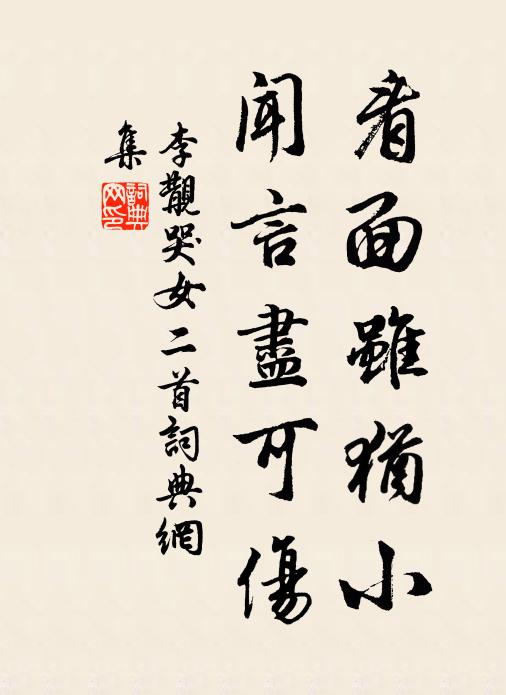 看面雖猶小
聞言盡可傷
李覯哭女二首詞典網
集
詞典网印